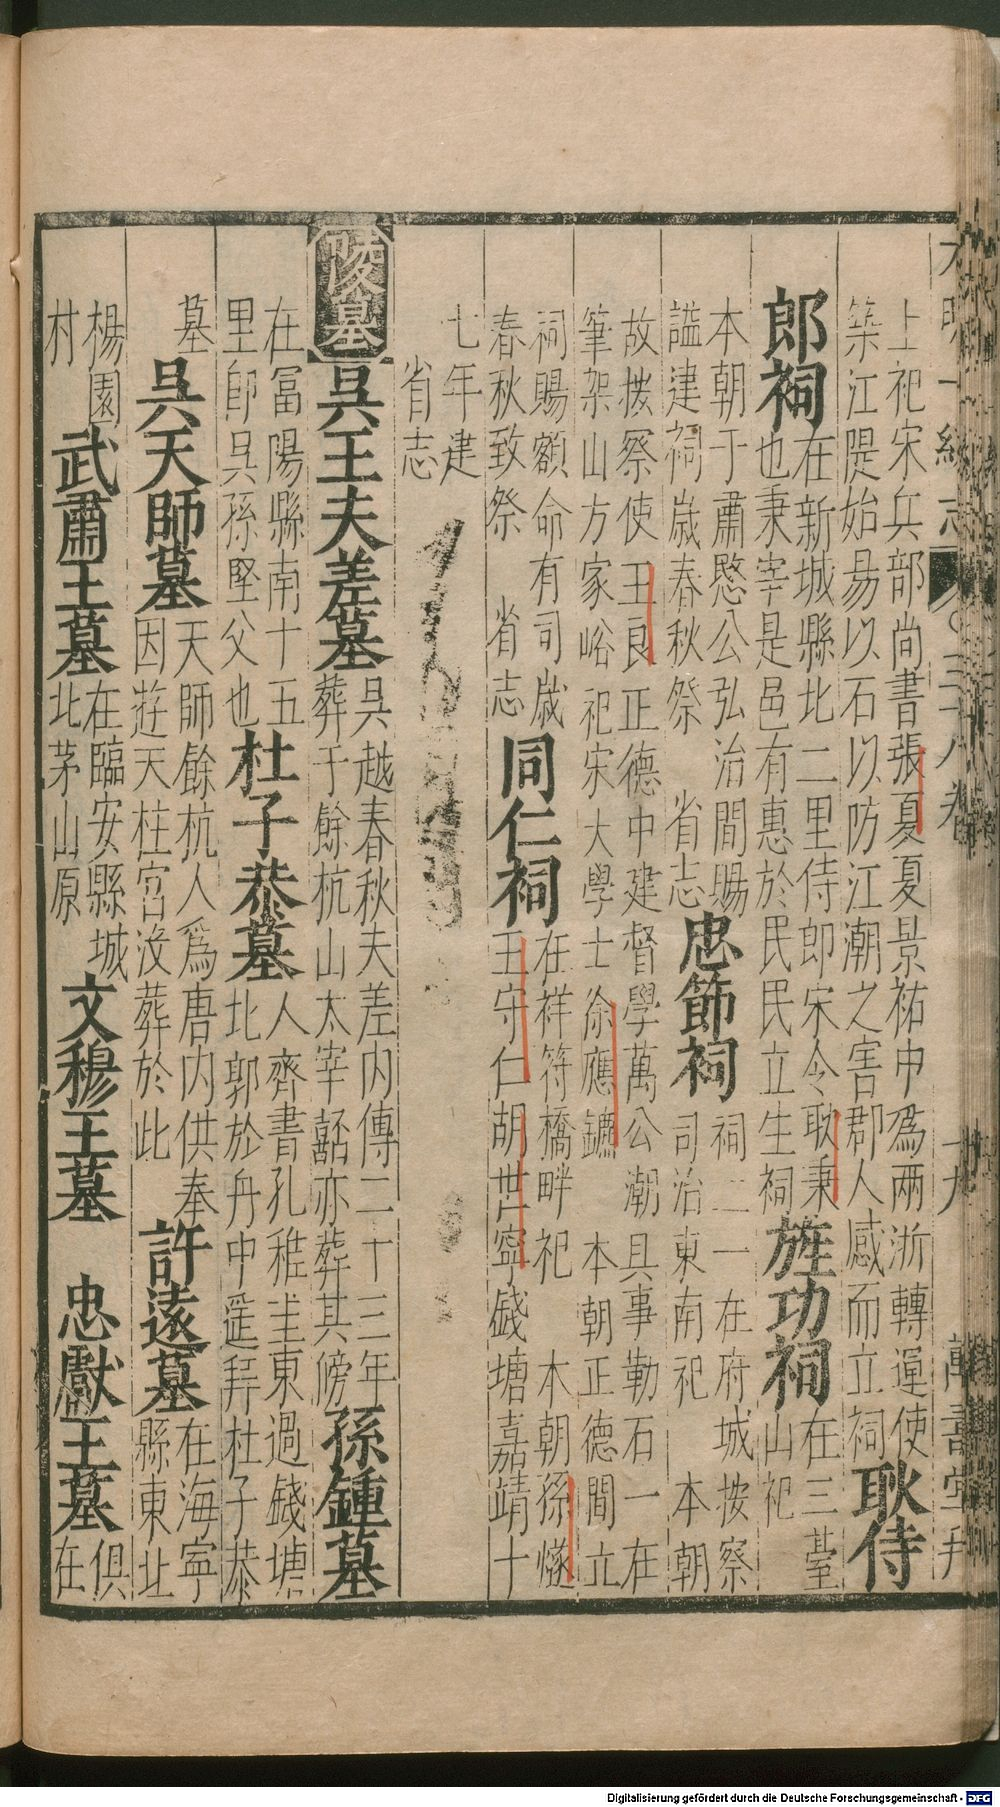 大明一統志 三十八卷 十九 萬壽堂刊
上祀宋兵部尚書張夏夏景祐中爲兩浙轉運使
築江隄始易以石以防江潮之害郡人感而立祠
耿侍
郎祠
在新城縣北二里侍郎宋令耿秉
也秉宰是邑有惠於民民立生祠
旌功祠
在三臺
山祀
本朝于肅愍公弘治間賜
謚建祠歲春秋祭 省志
忠節祠
祠二一在府城按察
司治東南祀 本朝
故按察使王良正德中建督學萬公潮具事勒石一在
筆架山方家峪祀宋大學士徐應鑣 本朝正德間立
祠賜額命有司歲
春秋致祭 省志
同仁祠
在祥符橋畔祀 本朝孫燧
王守仁胡世寧錢塘嘉靖十
七年建
省志
陵墓
吳王夫差墓
吳越春秋夫差内傳二十三年
葬于餘杭山太宰嚭亦葬其傍
孫鍾墓
在富陽縣南十五
里即吳孫堅父也
杜子恭墓
人齊書孔稚圭東過錢塘
北郭於舟中遥拜杜子恭
墓
吳天師墓
天師餘杭人爲唐内供奉
因遊天柱宮沒葬於此
許遠墓
在海寧
縣東北
楊園
村
武肅王墓
在臨安縣城
北茅山原
文穆王墓
忠獻王墓
俱
在
Digitalisierung gefördert durch die Deutsche Forschungsgemeinschaft - DFG